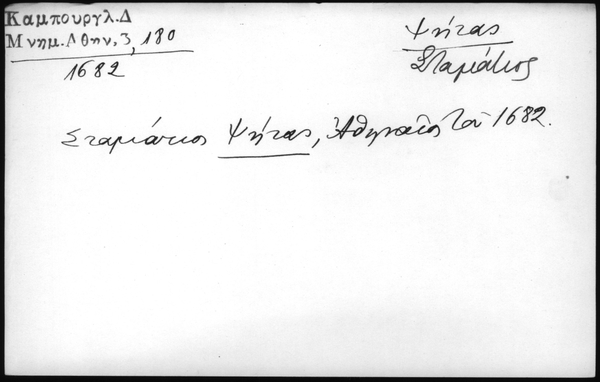 Καμπουργλ.Δ
Μνημ.Αθην,3,180
1682
Ψήτας
Σταμάτιος
Σταμάτιος Ψήτας, Ἀθηναῖος τοῦ 1682.